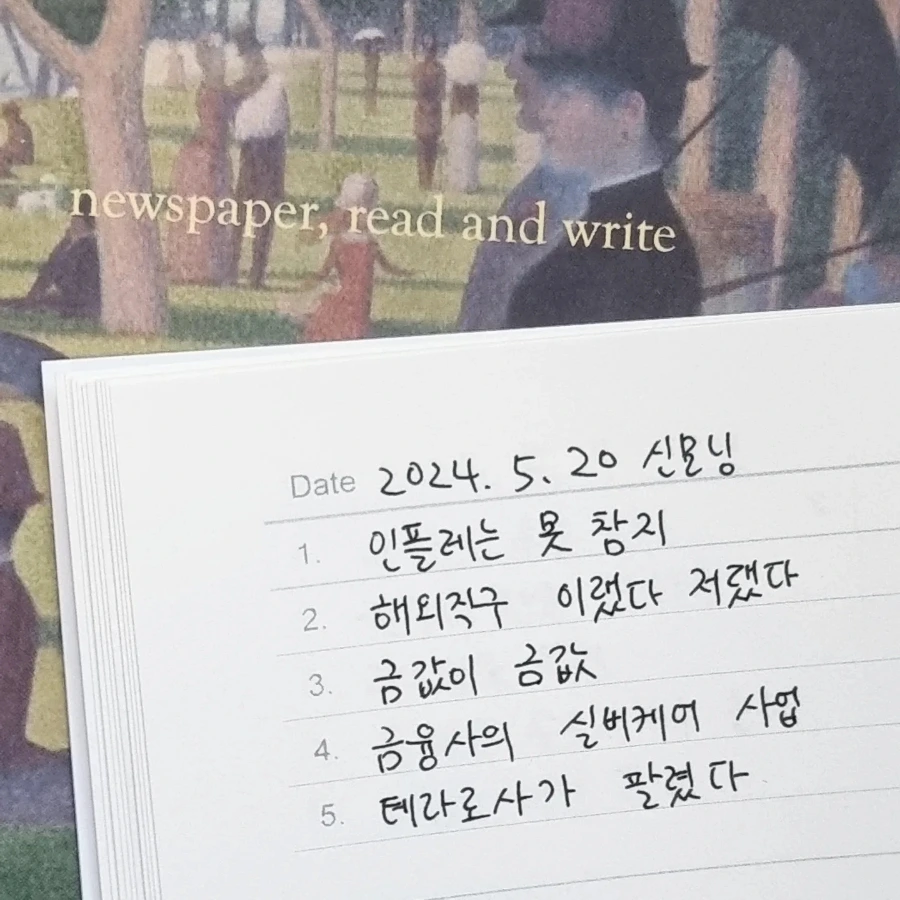 newspaper, read and write
Date 2024. 5. 20 신모닝
1. 인플레는 못 참지
2. 해외직구 이랬다 저랬다
3. 금값이 금값
4. 금융사의 실버케어 사업
5. 테라로사가 팔렸다